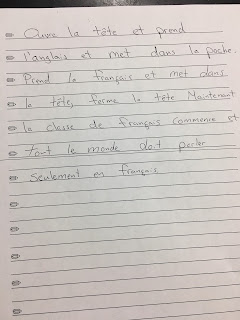 Ouvre la tête et prend
l'anglais et met dans la poche.
Prend le français et met dans
la tête, ferme la tête Maintenant
la classe de français commence et
tout le monde doit parler
seulement en français